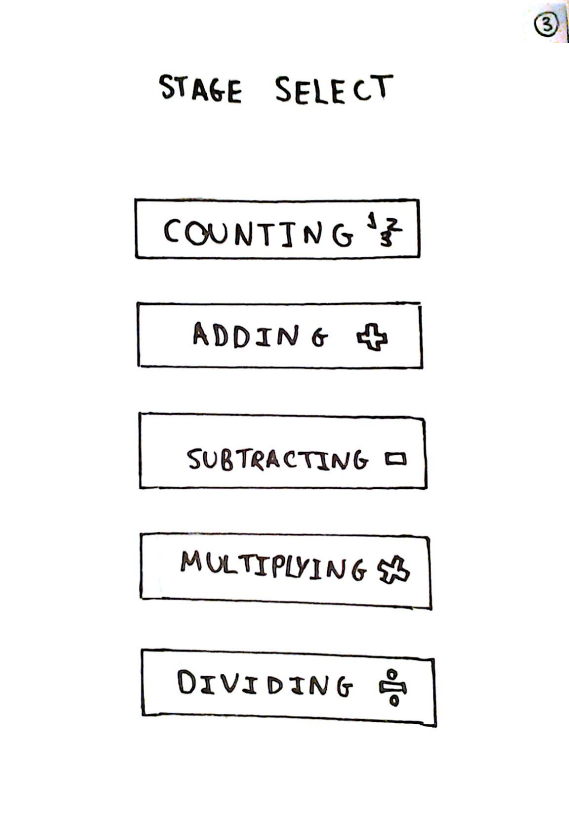 ③
STAGE SELECT
COUNTING 123
ADDING +
SUBTRACTING -
MULTIPLYING ×
DIVIDING ÷